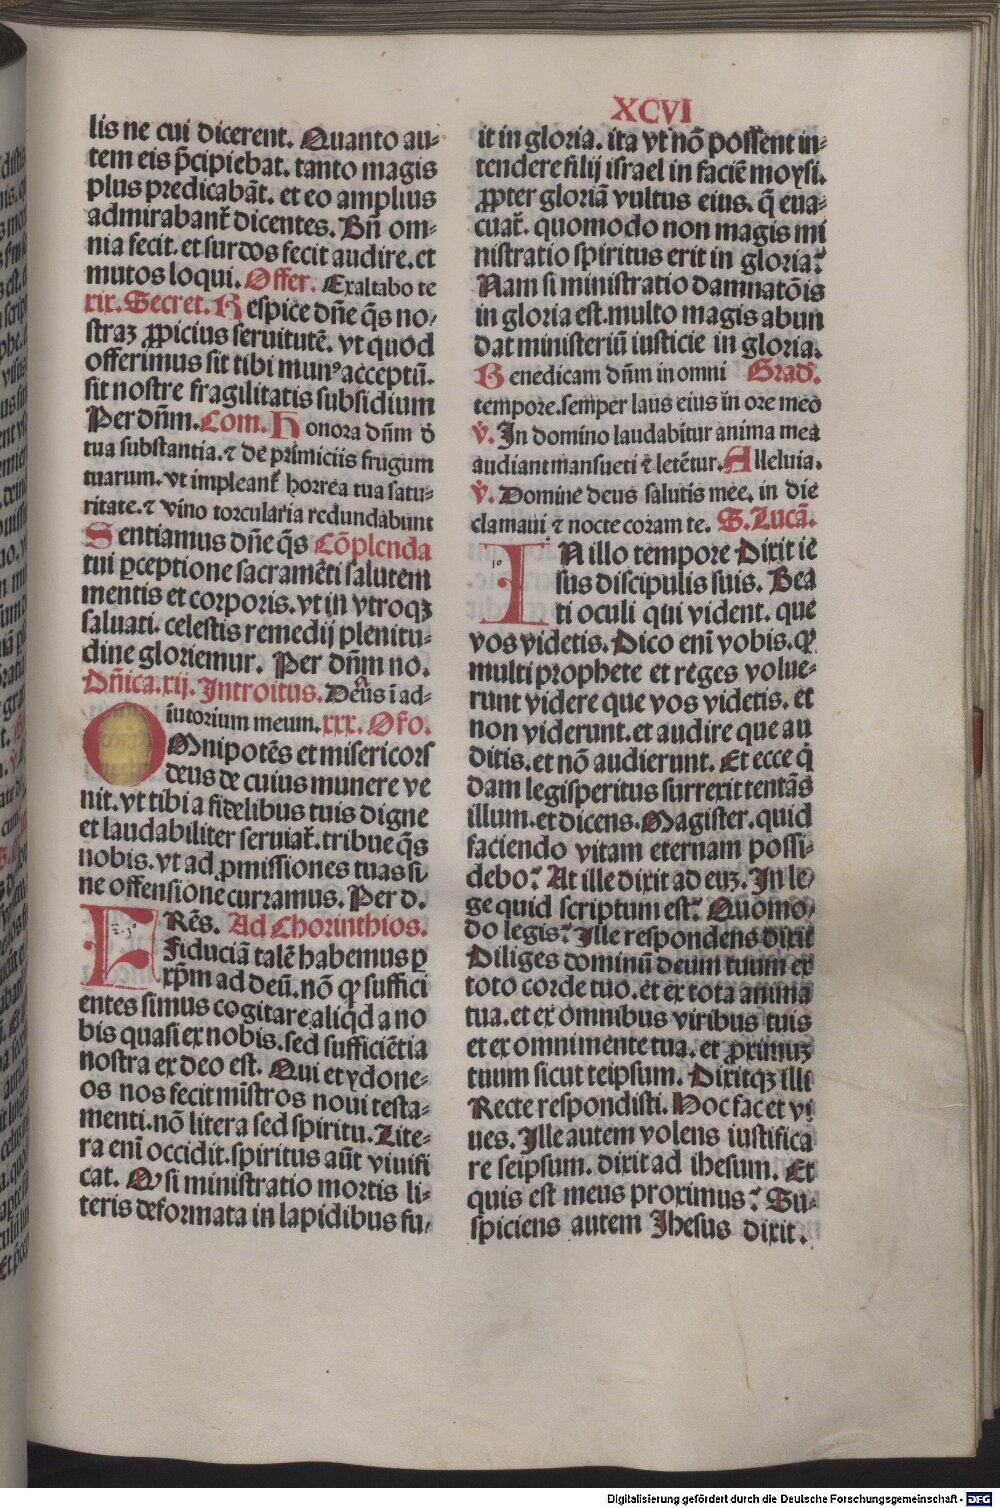 XCVI
lis ne cui dicerent. Quanto au-
tem eis p̄cipiebat. tanto magis
plus predicabāt. et eo amplius
admirabant̄ dicentes. Bn̄ om-
nia fecit. et surdos fecit audire. et
mutos loqui. Offer. Exaltabo te
xix. Secret. Respice dn̄e q̄s no-
straꝫ ꝓpicius seruitutē. vt quod
offerimus sit tibi munꝰ acceptū.
sit nostre fragilitatis subsidium
Per dn̄m. Com. Honora dn̄m ō
tua substantia. ⁊ de primiciis frugum
tuarum. vt impleant̄ horrea tua satu-
ritate. ⁊ vino torcularia redundabunt
Sentiamus dn̄e q̄s Cōplenda
tui ꝑceptione sacramēti salutem
mentis et corporis. vt in vtroqꝫ
saluati. celestis remedij plenitu-
dine gloriemur. Per dn̄m no.
Dn̄ica. xij. Introitus. Deus ī ad-
iutorium meum. xxx. Oŕo.
OMnipotēs et misericors
deus de cuius munere ve
nit. vt tibi a fidelibus tuis digne
et laudabiliter seruiat̄. tribue q̄s
nobis. vt ad ꝓmissiones tuas si-
ne offensione curramus. Per d.
FRēs. Ad Chorinthios.
Fiduciā talē habemus ꝑ
xp̄m ad deū. nō ꝙ suffici
entes simus cogitare aliqd a no
bis quasi ex nobis. sed sufficiētia
nostra ex deo est. Qui et ydone-
os nos fecit mīstros noui testa-
menti. nō litera sed spiritu. Lite-
ra enī occidit. spiritus aūt viuifi
cat. Ꝙ si ministratio mortis li-
teris deformata in lapidibus fu-
it in gloria. ita vt nō possent in-
tendere filij israel in faciē moysi.
ꝓpter gloriā vultus eius. q̄ eua-
cuat̄. quomodo non magis mi
nistratio spiritus erit in gloria?
Nam si ministratio damnatōis
in gloria est. multo magis abun
dat ministeriū iusticie in gloria.
Benedicam dn̄m in omni Grad.
tempore. semper laus eius in ore meo
v̄. In domino laudabitur anima mea
audiant mansueti ⁊ letētur. Alleluia.
v̄. Domine deus salutis mee. in die
clamaui ⁊ nocte coram te. S. Lucā.
IN illo tempore Dixit ie
sus discipulis suis. Bea
ti oculi qui vident. que
vos videtis. Dico enī vobis. ꝙ
multi prophete et reges volue-
runt videre que vos videtis. et
non viderunt. et audire que au
ditis. et nō audierunt. Et ecce q̄
dam legisperitus surrexit tentās
illum. et dicens. Magister. quid
faciendo vitam eternam possi-
debo? At ille dixit ad euꝫ. In le-
ge quid scriptum est? Quomo-
do legis? Ille respondens dixit
Diliges dominū deum tuum ex
toto corde tuo. et ex tota anima
tua. et ex omnibus viribus tuis
et ex omni mente tua. et ꝓximuꝫ
tuum sicut teipsum. Dixitqꝫ illi
Recte respondisti. Hoc fac et vi
ues. Ille autem volens iustifica
re seipsum. dixit ad ihesum. Et
quis est meus proximus? Su-
spiciens autem Jhesus dixit.
Digitalisierung gefördert durch die Deutsche Forschungsgemeinschaft - DFG